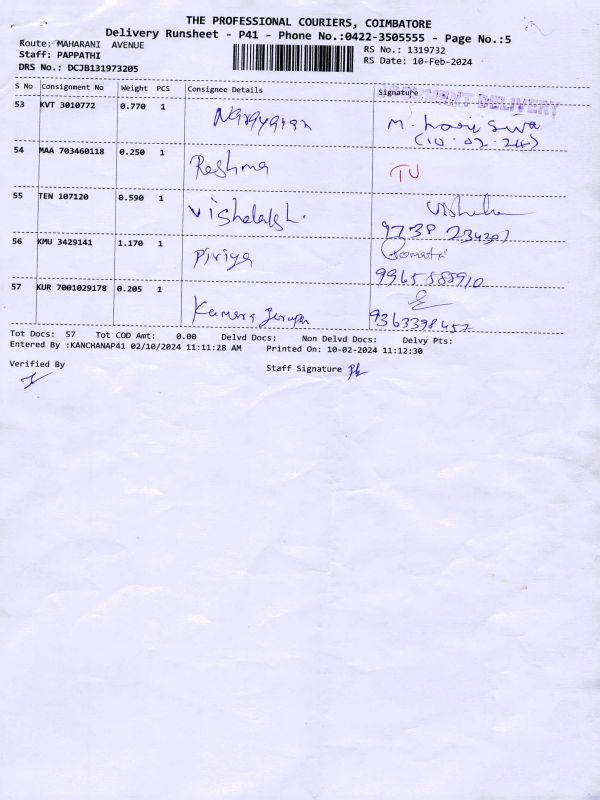 THE PROFESSIONAL COURIERS, COIMBATORE
Delivery Runsheet - P41 - Phone No.:0422-3505555 - Page No.:5
Route: MAHARANI AVENUE
Staff: PAPPATHI
DRS No.: DCJB131973205
RS No.: 1319732
RS Date: 10-Feb-2024
S No Consignment No Weight PCS Consignee Details Signature
DELIVERY
53 KVT 3010772 0.770 1 Narayanan M. Hari Siva
(10.02.24)
54 MAA 703460118 0.250 1 Reshma TU
55 TEN 107120 0.590 1 Vishalakshi.
9738 234307
56 KMU 3429141 1.170 1 Piriya
9965588910
57 KUR 7001029178 0.205 1 Kumara
9363398452
Tot Docs: 57 Tot COD Amt: 0.00 Delvd Docs: Non Delvd Docs: Delvy Pts:
Entered By :KANCHANAP41 02/10/2024 11:11:28 AM Printed On: 10-02-2024 11:12:30
Verified By
Staff Signature